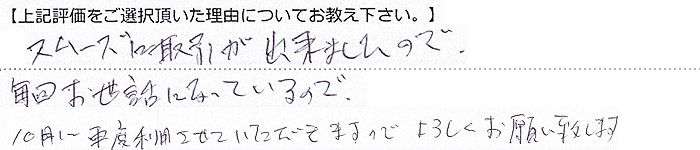 【上記評価をご選択頂いた理由についてお教え下さい。】
スムーズに取引が出来ましたので、
毎回お世話になっているので、
10月に再度利用させていただきますので よろしくお願い致します